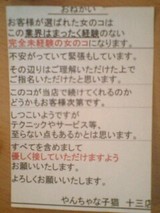 おねがい
お客様が選ばれた女のコは
この業界はまったく経験のない
完全未経験の女のコになります。
不安がっていて緊張もしています。
その辺りはご理解いただけた上で
ご指名いただけたと思います。
このコが当店で続けてくれるのか
どうかもお客様次第です。
しつこいようですが
テクニックやサービス等、
至らない点もあるかとは思います。
すべてを含めまして
優しく接していただけますよう
お願いいたします。
よろしくお願いいたします。
やんちゃな子猫 十三店